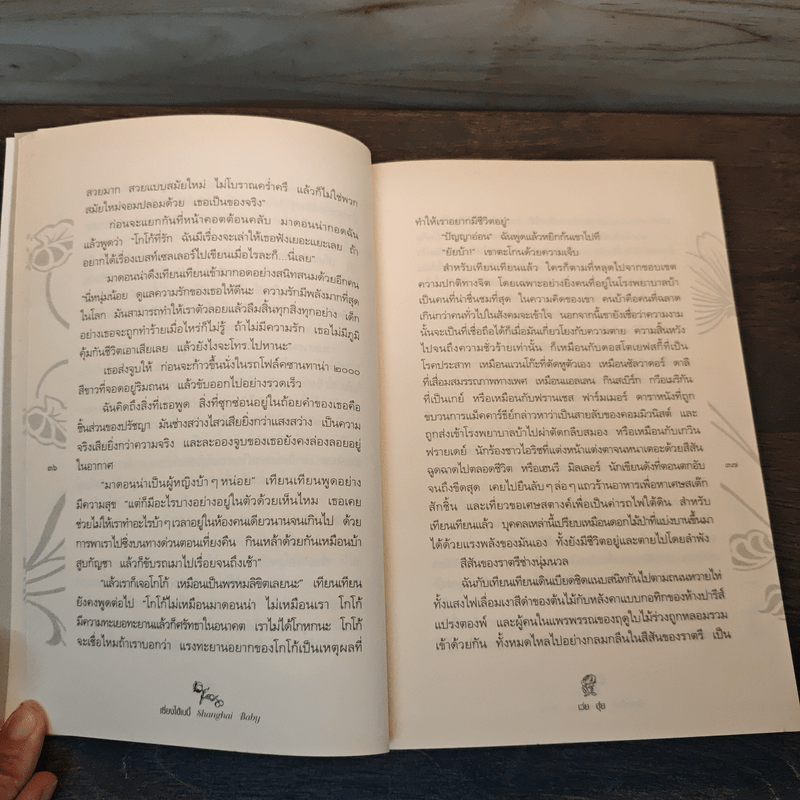 สวยมาก สวยแบบสมัยใหม่ ไม่โบราณคร่ำครึ แล้วก็ไม่ใช่พวก
สมัยใหม่จอมปลอมด้วย เธอเป็นของจริง"
ก่อนจะแยกกันที่หน้าคอตต้อนคลับ มาดอนน่ากอดฉัน
แล้วพูดว่า "โกโก้ที่รัก ฉันมีเรื่องจะเล่าให้เธอฟังเยอะแยะเลย ถ้า
อยากได้เรื่องเบสท์เซลเลอร์ไปเขียนเมื่อไรละก็...นี่เลย"
มาดอนน่าดึงเทียนเทียนเข้ามากอดอย่างสนิทสนมด้วยอีกคน
"นี่หนุ่มน้อย ดูแลความรักของเธอให้ดีนะ ความรักมีพลังมากที่สุด
ในโลก มันสามารถทำให้เราตัวลอยแล้วลืมสิ้นทุกสิ่งทุกอย่าง เด็ก
อย่างเธอจะถูกทำร้ายเมื่อไหร่ก็ไม่รู้ ถ้าไม่มีความรัก เธอไม่มีภูมิ
คุ้มกันชีวิตเอาเสียเลย แล้วยังไงจะโทร.ไปหานะ"
เธอส่งจูบให้ ก่อนจะก้าวขึ้นนั่งในรถโฟล์คซานทาน่า ๒๐๐๐
สีขาวที่จอดอยู่ริมถนน แล้วขับออกไปอย่างรวดเร็ว
ฉันคิดถึงสิ่งที่เธอพูด สิ่งที่ซุกซ่อนอยู่ในถ้อยคำของเธอคือ
ชิ้นส่วนของปรัชญา มันช่างสว่างไสวเสียยิ่งกว่าแสงสว่าง เป็นความ
จริงเสียยิ่งกว่าความจริง และละอองจูบของเธอยังคงล่องลอยอยู่
ในอากาศ
"มาดอนน่าเป็นผู้หญิงบ้าๆ หน่อย" เทียนเทียนพูดอย่าง
มีความสุข "แต่ก็มีอะไรบางอย่างอยู่ในตัวด้วยเห็นไหม เธอเคย
ช่วยไม่ให้เราทำอะไรบ้าๆ เวลาอยู่ในห้องคนเดียวนานจนเกินไป ด้วย
การพาเราไปซิ่งบนทางด่วนตอนเที่ยงคืน กินเหล้าด้วยกันเหมือนบ้า
สูบกัญชา แล้วก็ขับรถเมาไปเรื่อยจนถึงเช้า"
"แล้วเราก็เจอโกโก้ เหมือนเป็นพรหมลิขิตเลยนะ" เทียนเทียน
ยังคงพูดต่อไป "โกโก้ไม่เหมือนมาดอนน่า ไม่เหมือนเรา โกโก้
มีความทะเยอทะยานแล้วก็ศรัทธาในอนาคต เราไม่ได้โกหกนะ โกโก้
จะเชื่อไหมถ้าเราบอกว่า แรงทะยานอยากของโกโก้เป็นเหตุผลที่
๓๖
เซี่ยงไฮ้เบบี้ Shanghai Baby
ทำให้เราอยากมีชีวิตอยู่"
"ปัญญาอ่อน" ฉันพูดแล้วหยิกก้นเขาไปที
"ยัยบ้า!" เขาตะโกนด้วยความเจ็บ
สำหรับเทียนเทียนแล้ว ใครก็ตามที่หลุดไปจากขอบเขต
ความปกติทางจิต โดยเฉพาะอย่างยิ่งคนที่อยู่ในโรงพยาบาลบ้า
เป็นคนที่น่าชื่นชมที่สุด ในความคิดของเขา คนบ้าคือคนที่ฉลาด
เกินกว่าคนทั่วไปในสังคมจะเข้าใจ นอกจากนี้เขายังเชื่อว่าความงาม
นั้นจะเป็นที่เชื่อถือได้ก็เมื่อมันเกี่ยวโยงกับความตาย ความสิ้นหวัง
ไปจนถึงความชั่วร้ายเท่านั้น ก็เหมือนกับดอสโตเยฟสกี้ที่เป็น
โรคประสาท เหมือนแวนโก๊ะที่ตัดหูตัวเอง เหมือนซัลวาดอร์ ดาลี
ที่เสื่อมสมรรถภาพทางเพศ เหมือนแอลเลน กินสเบิร์ก กวีอเมริกัน
ที่เป็นเกย์ หรือเหมือนกับฟรานเซส ฟาร์มเมอร์ ดาราหนังที่ถูก
ขบวนการแม็คคาร์ธีย์กล่าวหาว่าเป็นสายลับของคอมมิวนิสต์ และ
ถูกส่งเข้าโรงพยาบาลบ้าไปผ่าตัดกลีบสมอง หรือเหมือนกับเกวิน
ฟรายเดย์ นักร้องชาวไอริชที่แต่งหน้าแต่งตาจนหนาเตอะด้วยสีสัน
ฉูดฉาดไปตลอดชีวิต หรือเฮนรี่ มิลเลอร์ นักเขียนดังที่ตอนตกอับ
จนถึงขีดสุด เคยไปยืนลับๆ ล่อๆ แถวร้านอาหารเพื่อหาเศษสเต๊ก
สักชิ้น และเที่ยวขอเศษสตางค์เพื่อเป็นค่ารถไฟใต้ดิน สำหรับ
เทียนเทียนแล้ว บุคคลเหล่านี้เปรียบเหมือนดอกไม้ป่าที่เบ่งบานขึ้นมา
ได้ด้วยแรงพลังของมันเอง ทั้งยังมีชีวิตอยู่และตายไปโดยลำพัง
สีสันของราตรีช่างนุ่มนวล
ฉันกับเทียนเทียนเดินเบียดชิดแนบสนิทกันไปตามถนนหวายไห่
ทั้งแสงไฟเลื่อมเงาสีดำของต้นไม้กับหลังคาแบบกอทิกของห้างปารีส์
แปรงตองพ์ และผู้คนในแพรพรรณของฤดูใบไม้ร่วงถูกหลอมรวม
เข้าด้วยกัน ทั้งหมดไหลไปอย่างกลมกลืนในสีสันของราตรี เป็น
๓๗
เว่ย ฮุ่ย